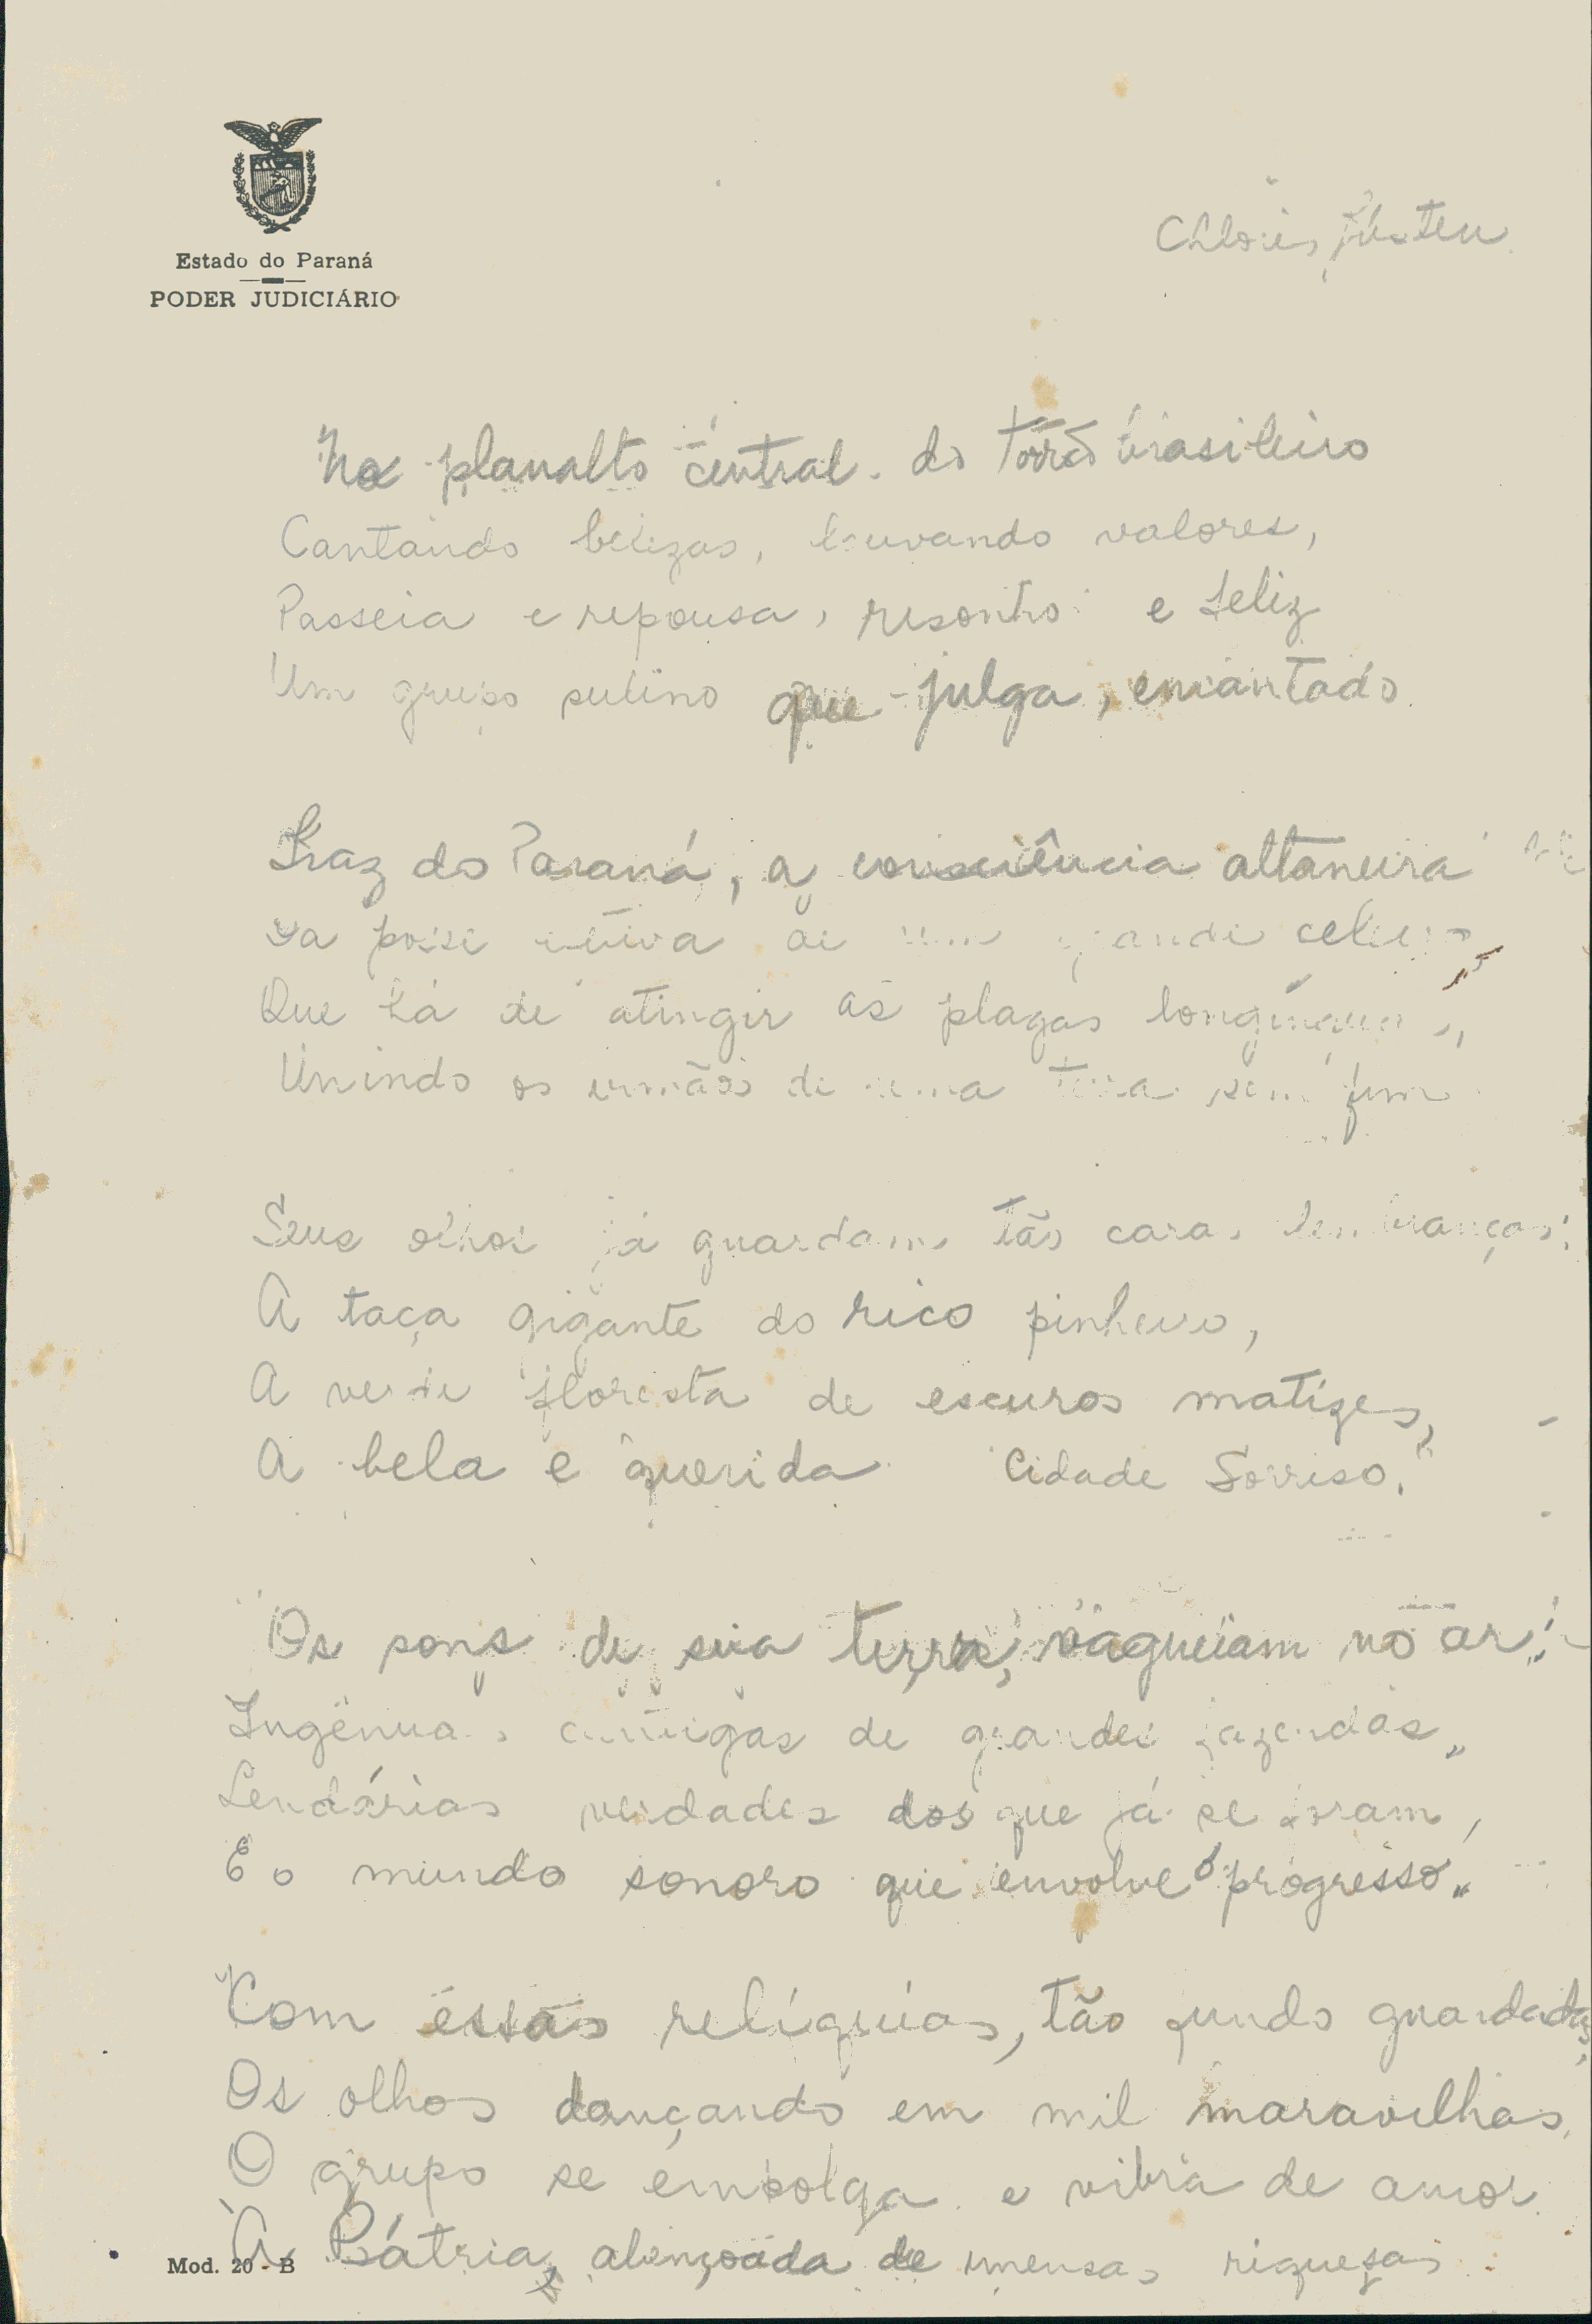 Estado do Paraná
PODER JUDICIÁRIO
Chloris Justen
No planalto central do torrão brasileiro
Cantando belezas, louvando valores,
Passeia e repousa, risonho e feliz
Um grupo sulino que julga, encantado
Traz do Paraná, a consciência altaneira
da posse de grande celeiro,
Que há de atingir as plagas longínquas,
Unindo os irmãos de uma terra sem fim
Seus olhos já guardam tão caras lembranças:
A taça gigante do rico pinheiro,
A verde floresta de escuros matizes,
A bela e querida "Cidade Sorriso."
Os sons de sua terra, vagueiam no ar:
Ingênuas cantigas de grandes fazendas,
Lendárias verdades dos que já se foram,
E o mundo sonoro que envolve o progresso.
Com essas relíquias, tão fundo guardadas,
Os olhos dançando em mil maravilhas,
O grupo se empolga e vibra de amor
À Pátria, abençoada de imensas riquezas
Mod. 20 - B